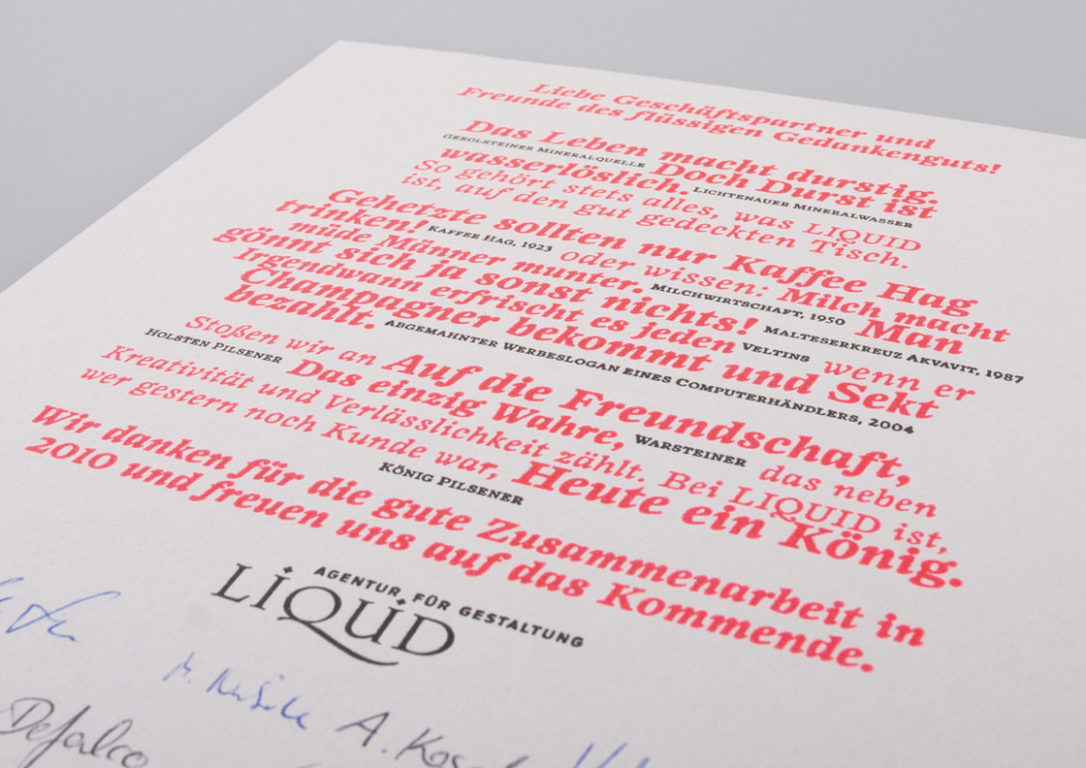 Liebe Geschäftspartner und
Freunde des flüssigen Gedankenguts!
Das Leben macht durstig.
GEROLSTEINER MINERALQUELLE Doch Durst ist
wasserlöslich. LICHTENAUER MINERALWASSER
So gehört stets alles, was LIQUID
ist, auf den gut gedeckten Tisch.
Gehetzte sollten nur Kaffee Hag
trinken! KAFFEE HAG, 1923 oder wissen: Milch macht
müde Männer munter. MILCHWIRTSCHAFT, 1950 Man
gönnt sich ja sonst nichts! MALTESERKREUZ AKVAVIT, 1987
Irgendwann erfrischt es jeden VELTINS wenn er
Champagner bekommt und Sekt
bezahlt. ABGEMAHNTER WERBESLOGAN EINES COMPUTERHÄNDLERS, 2004
Stoßen wir an Auf die Freundschaft,
HOLSTEN PILSENER Das einzig Wahre, WARSTEINER das neben
Kreativität und Verlässlichkeit zählt. Bei LIQUID ist,
wer gestern noch Kunde war, Heute ein König.
KÖNIG PILSENER
Wir danken für die gute Zusammenarbeit in
2010 und freuen uns auf das Kommende.
AGENTUR FÜR GESTALTUNG
LIQUID
Defalco
A.